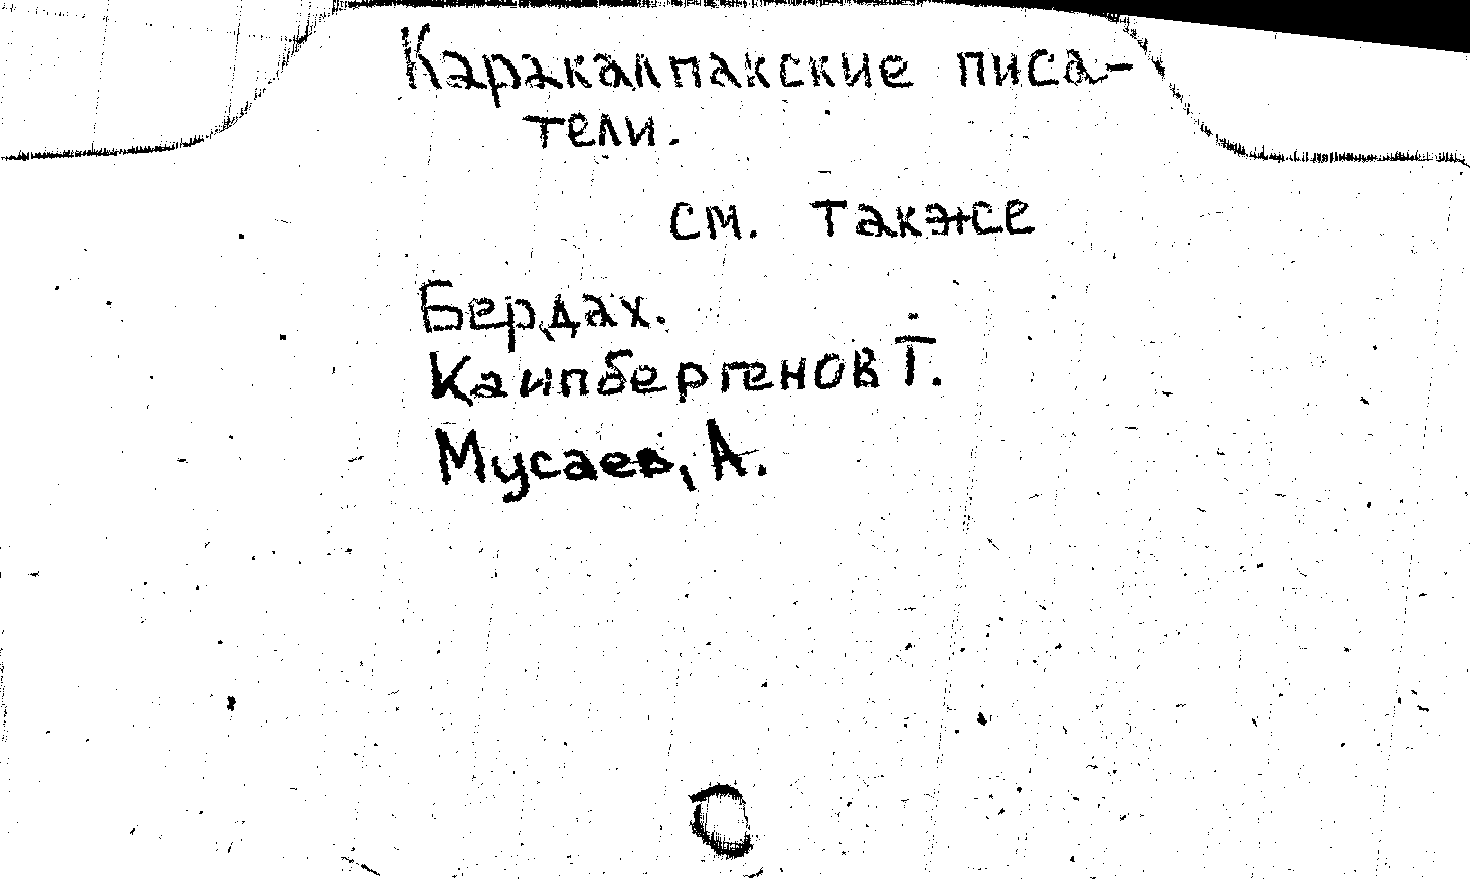 Каракалпакские писа-
тели.
см. также
Бердах.
Каипбергенов Т.
Мусаев, А.